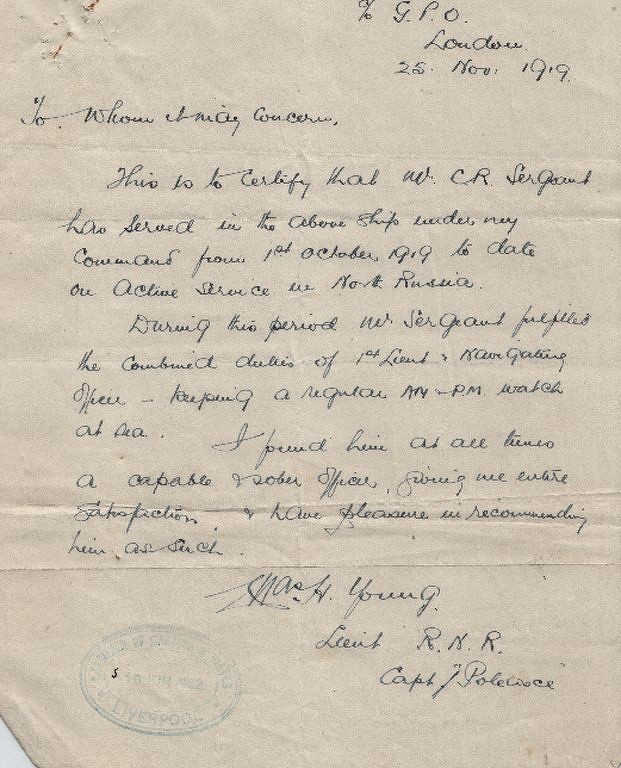 ℅ G.P.O.
London.
25. Nov. 1919.
To Whom it may Concern,
This is to Certify that Mr. C.R. Sergeant
has served in the above ship under my
Command from 1st October 1919 to date
on Active Service in North Russia.
During this period Mr Sergeant fulfilled
the combined duties of 1st Lieut & Navigating
Officer – keeping a regular AM & P.M. watch
at sea. I found him at all times
a capable & sober officer, giving me entire
satisfaction, & have pleasure in recommending
him as such.
H. Young.
Lieut R.N.R.
Capt
LIVERPOOL